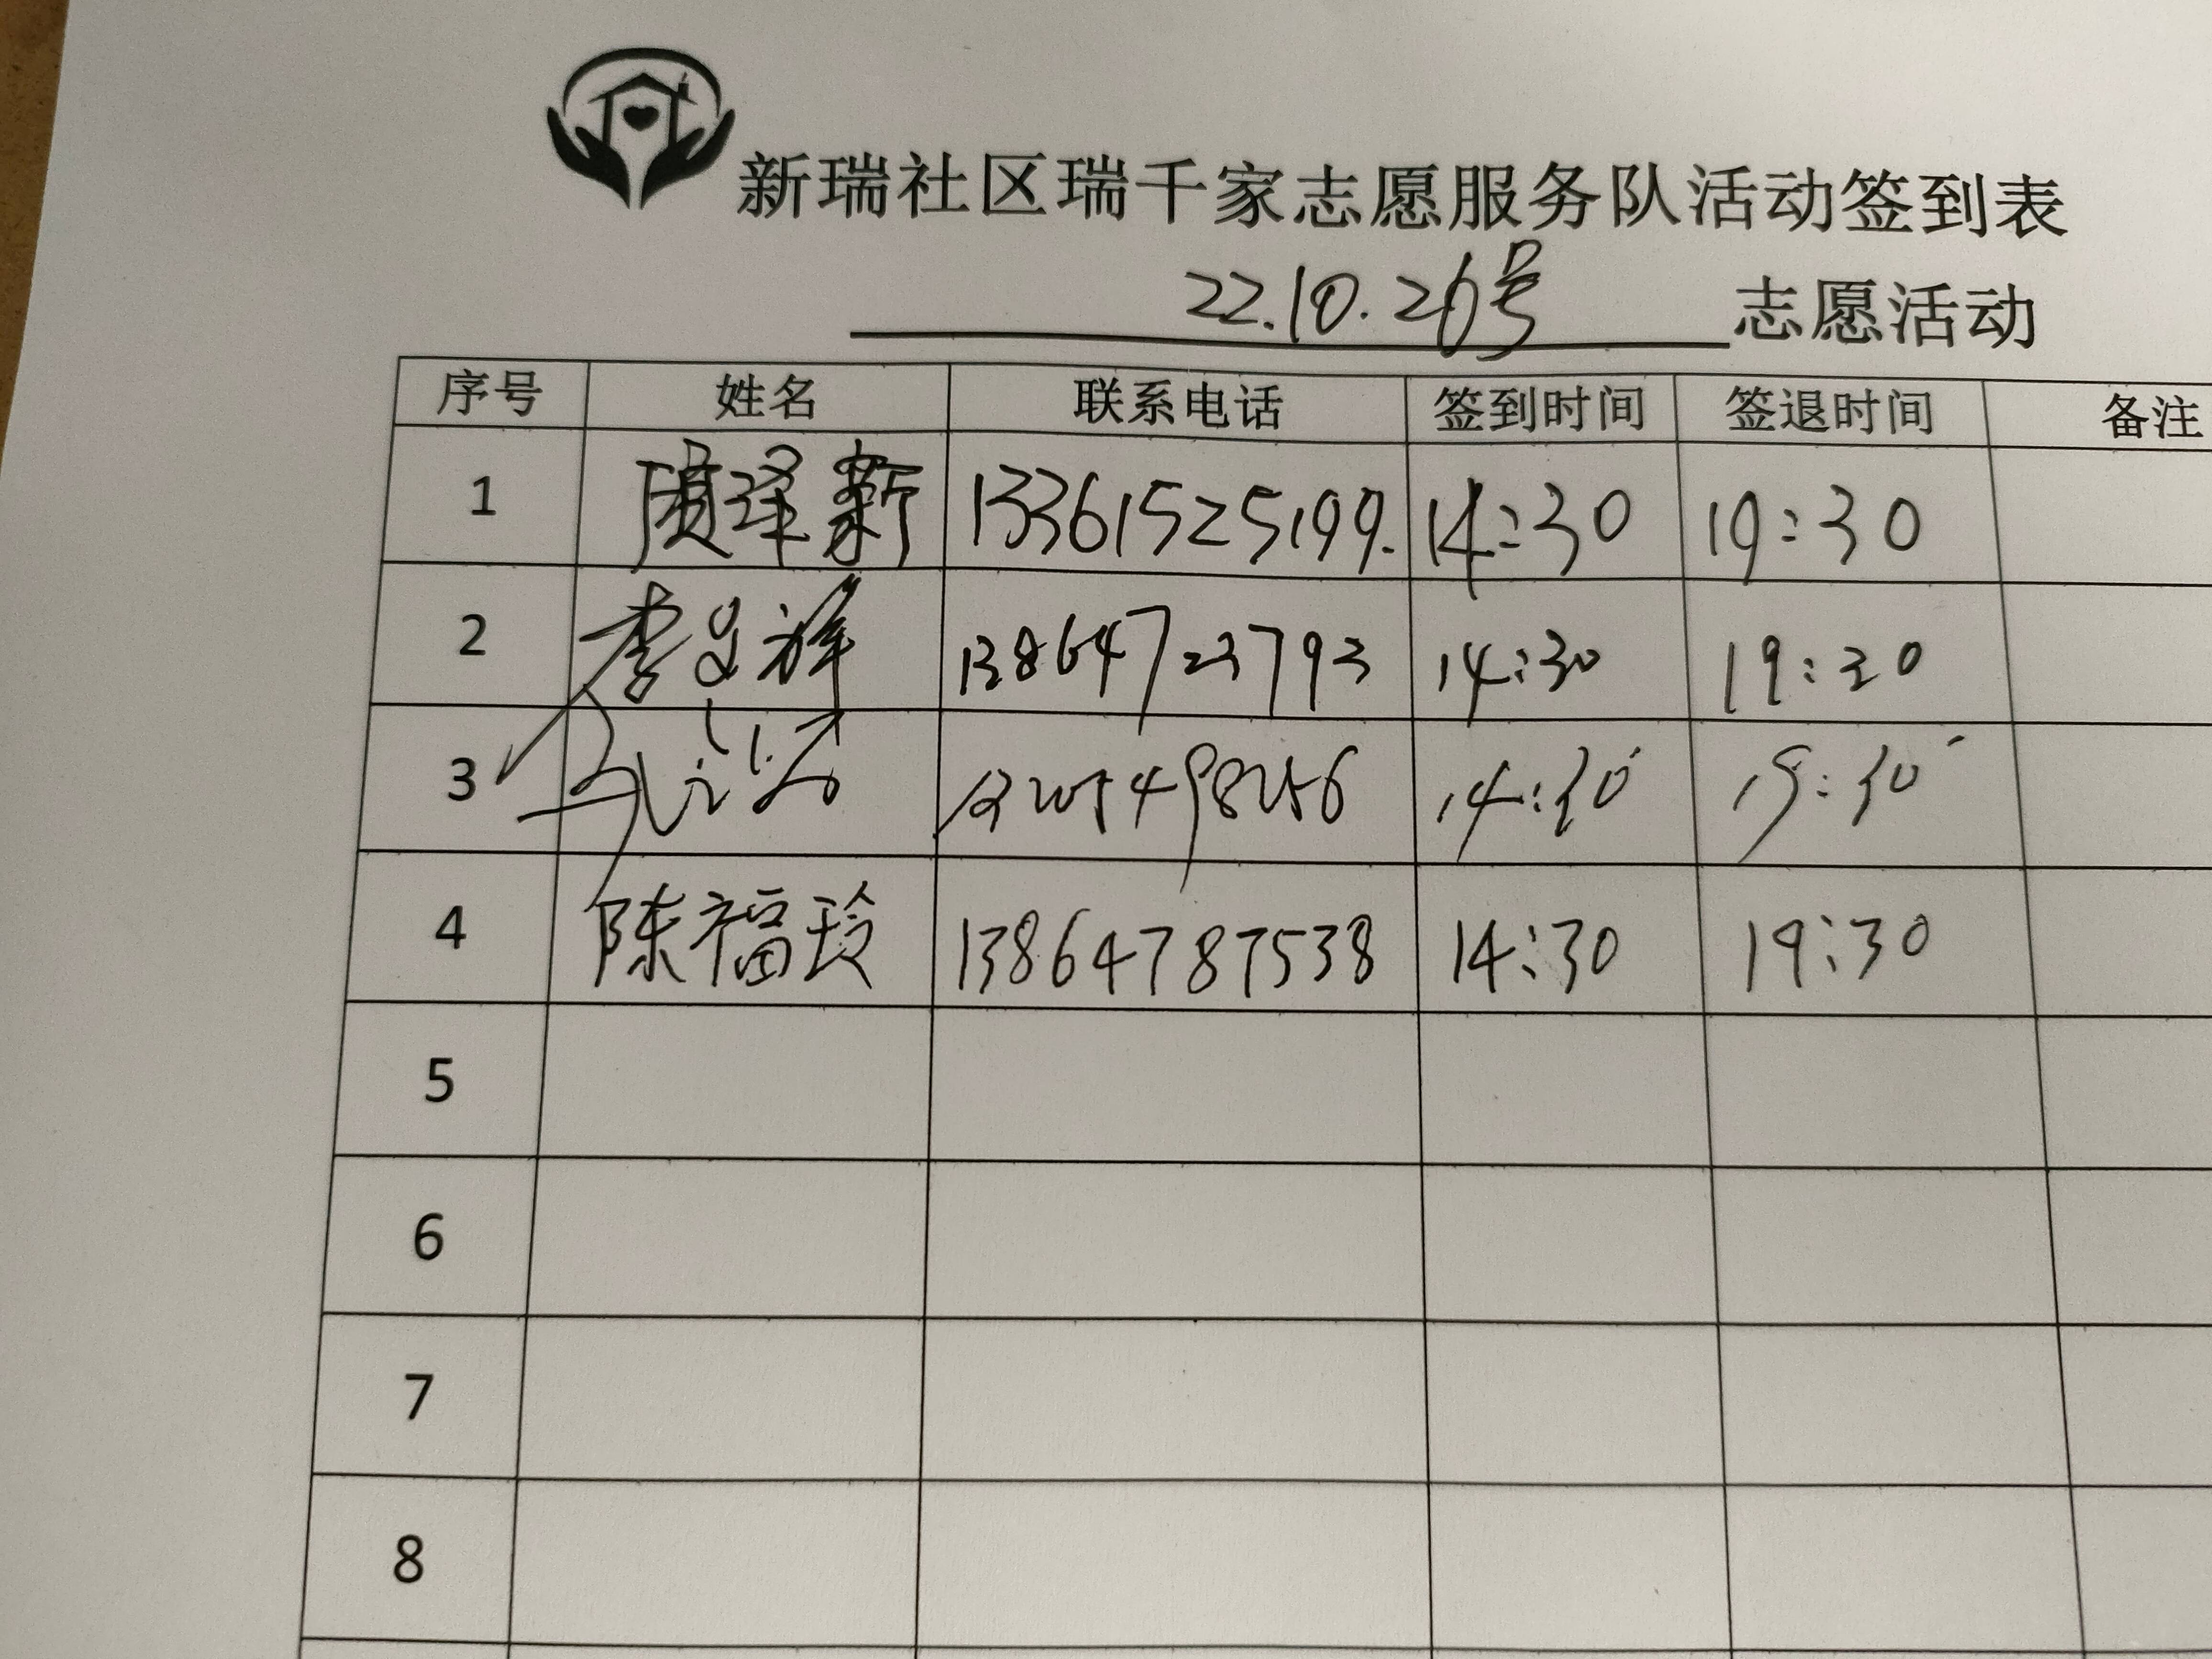 新瑞社区瑞千家志愿服务队活动签到表
22.10.26号 志愿活动
序号 姓名 联系电话 签到时间 签退时间 备注
1 13361525199. 14:30 19:30
2 李 祥 13864723793 14:30 19:30
3 14:30 19:30
4 陈福玲 13864787538 14:30 19:30
5
6
7
8